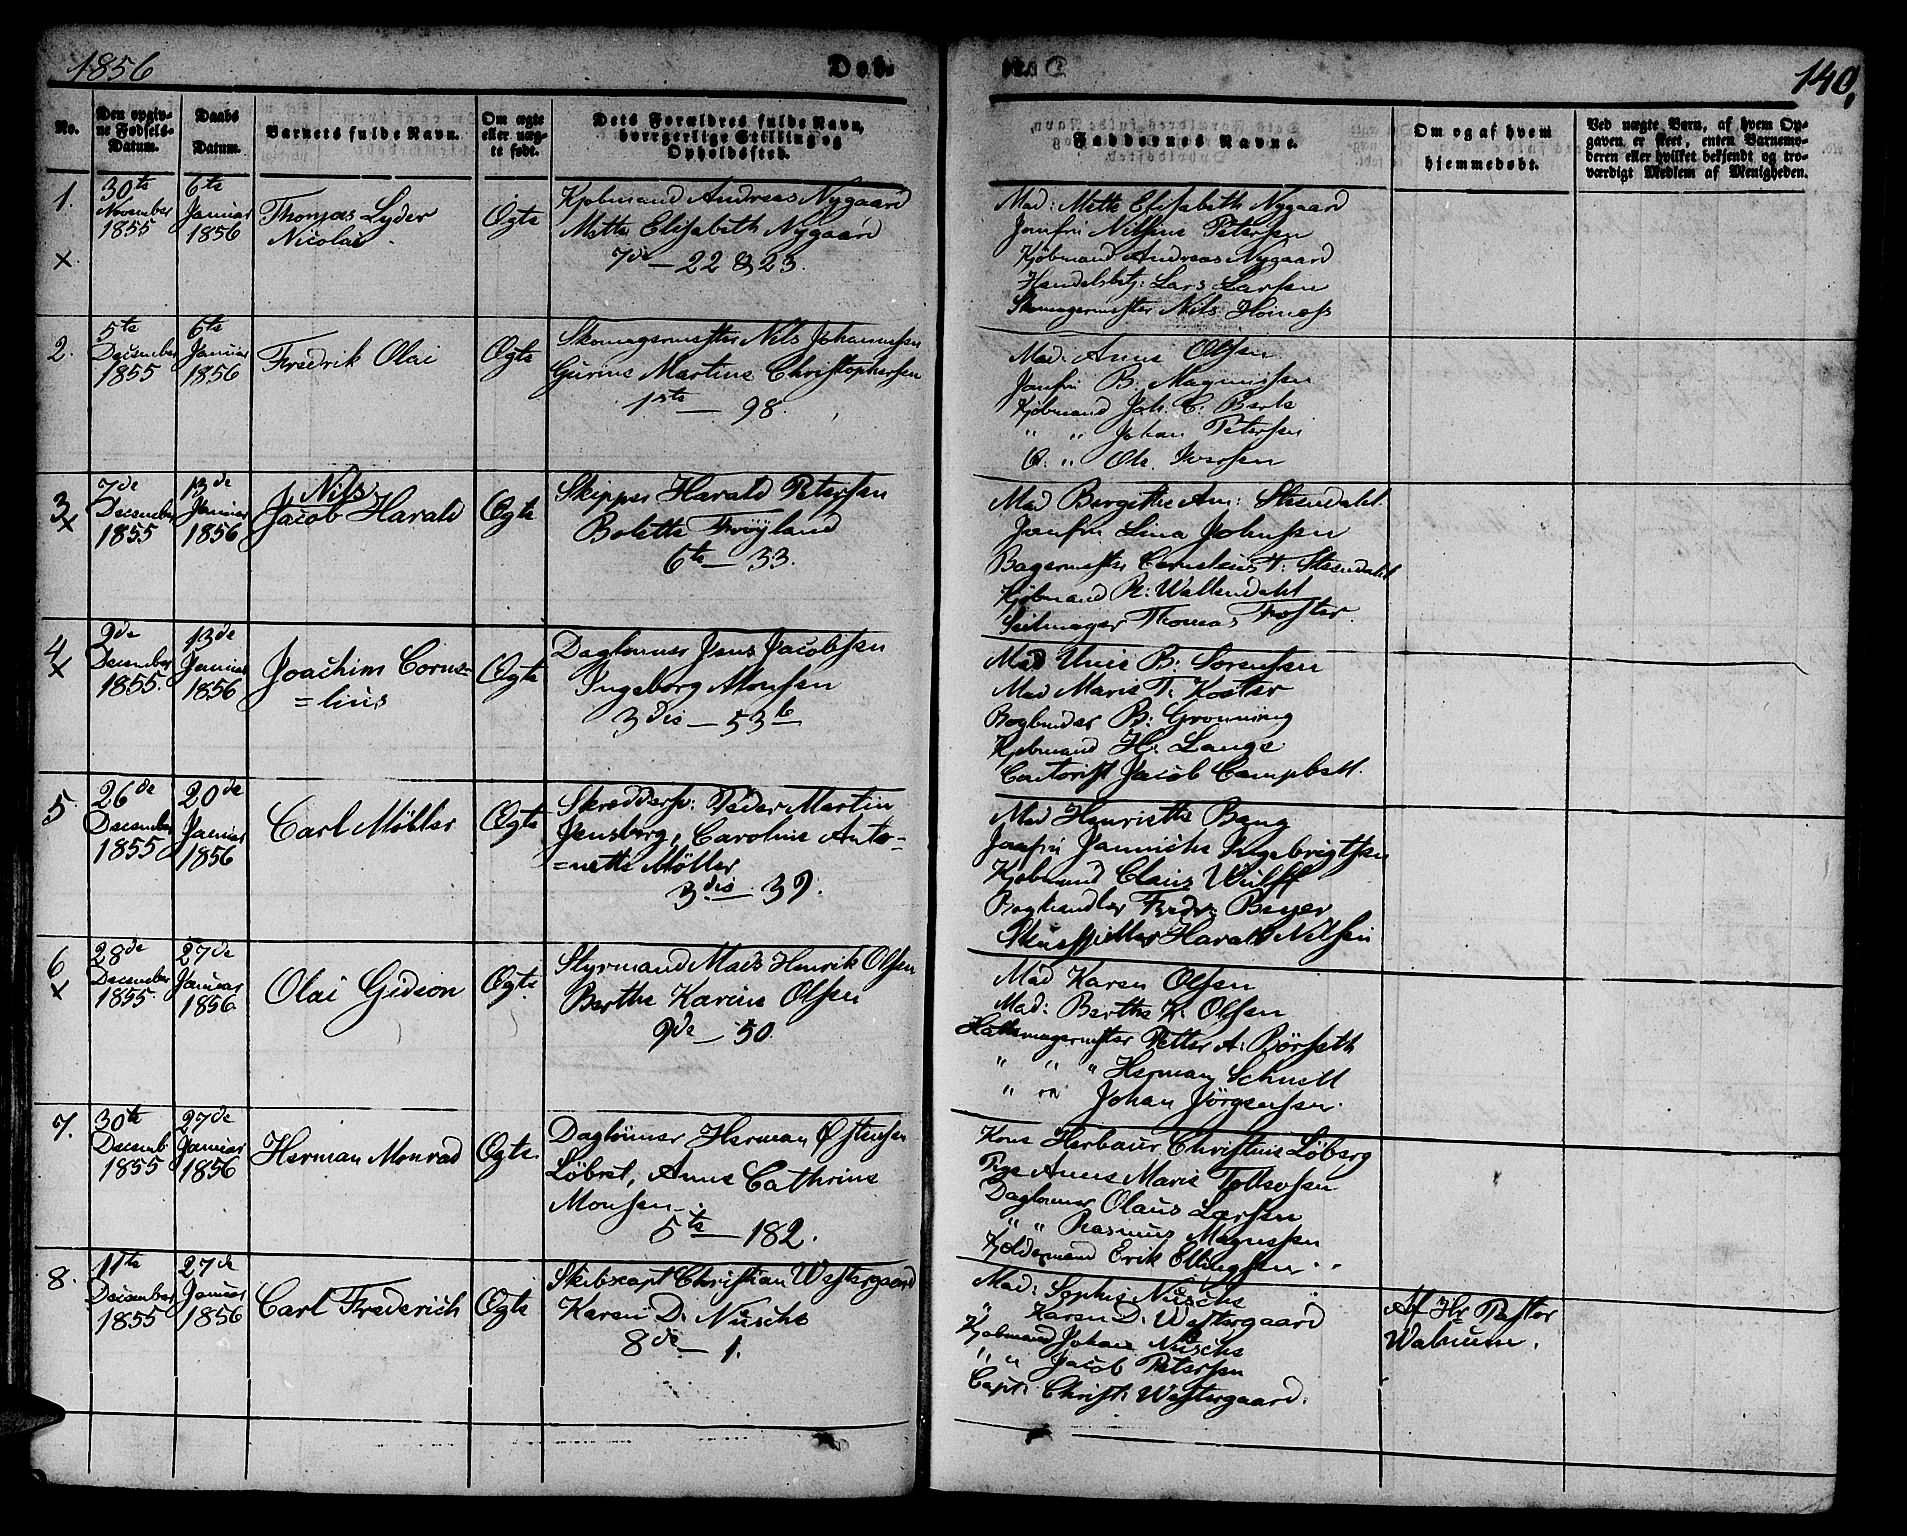 1856
Døb-
140,
No.
Den opgiv-
ne Fødsels-
Datum.
Daabs
Datum.
Barnets fulde Navn.
Om ægte
eller uæg-
te født.
Dets Forældres fulde Navn,
borgerlige Stilling og
Opholdssted.
Faddernes Navne.
Om og af hvem
hjemmedøbt.
Ved uægte Barn, af hvem Op-
gaven er skeet, enten Barnemo-
deren eller hvilket bekjendt og tro-
værdigt Medlem af Menigheden.
1.
×
30te
November
1855
6te
Januar
1856
Thomas Lyder
Nicolai
Ægte
Kjøbmand Andreas Nygaard
Mette Elisabeth Nygaard
7de — 22 & 23.
Mad: Mette Elisabeth Nygaard
Jomfru Nilsine Petersen
Kjøbmand Andreas Nygaard
Handelsbetj: Lars Larsen
Skomagermester Nils
2.
5te
December
1855
6te
Januar
1856
Fredrik Olai
Ægte
Skomagermester Nils Johannesen
Gurine Martine Christophersen
1ste — 98.
Mad: Anne Olsen
Jomfru B. Magnussen
Kjøbmand Joh. C.
" " Johan Petersen
" Ole Iversen
3
×
7de
December
1855
13de
Januar
1856
Nils
Jacob Harald
Ægte
Skipper Harald Petersen
Bolette Frøyland
6te — 33.
Mad Bergithe Am: Steendahl.
Jomfru Lina Johnsen
Bagermester Cornelius T: Steendahl
Kjøbmand R: Wallendahl
Seilmager Thomas Foster.
4
×
9de
December
1855.
13de
Januar
1856
Joachim Corne-
=lius
Ægte
Daglønner Jens Jacobsen
Ingeborg Monsen
3die — 53 b
Mad Unie B: Sorensen
Mad Marie T. Koster
Bogbinder B: Grønning
Kjøbmand H. Lange
Contorist Jacob Campbell.
5
26de
December
1855
20de
Januar
1856
Carl Møller
Ægte
Skræddersv: Peder Martin
Jensberg, Caroline Anto-
=nette Møller
3die — 39.
Mad Henriette Bang
Jomfru Jannicke Ingebrigtsen
Kjøbmand Claus Wulff
Boghandler Fredr: Beyer
Skuespiller Harald Nilsen
6
×
28de
December
1855.
27de
Januar
1856.
Olai Gideon
Ægte.
Styrmand Mads Henrik Olsen
Berthe Karine Olsen
9de — 50.
Mad Karen Olsen
Mad: Berthe K. Olsen
Hattemagermester Petter A: Børseth
" " " Herman Schnell
" " Johan Jørgensen.
7.
30te
Decemb
1855
27de
Januar
1856
Herman Monrad
Ægte.
Daglønner Herman Østensen
Løbret, Anne Cathrine
Monsen.
5te — 182.
Kone Herbaur Christine Løberg
Pige Anne Marie Tollevsen
Daglønner Olaus Larsen
" " Rasmus Magnesen
Kjeldermand Erik Ellingsen
8.
11te
December
1855
27de
Januar
1856
Carl Frederich
Ægte
Skibscapt Christian Westergaard
Karen D. Nusche
8de — 1.
Mad: Sophie Nusche
" Karen D. Westergaard
Kjøbmand Johan Nusche
" " Jacob Petersen
Capt: Christ: Westergaard.
Af Hr Pastor
Walnum.